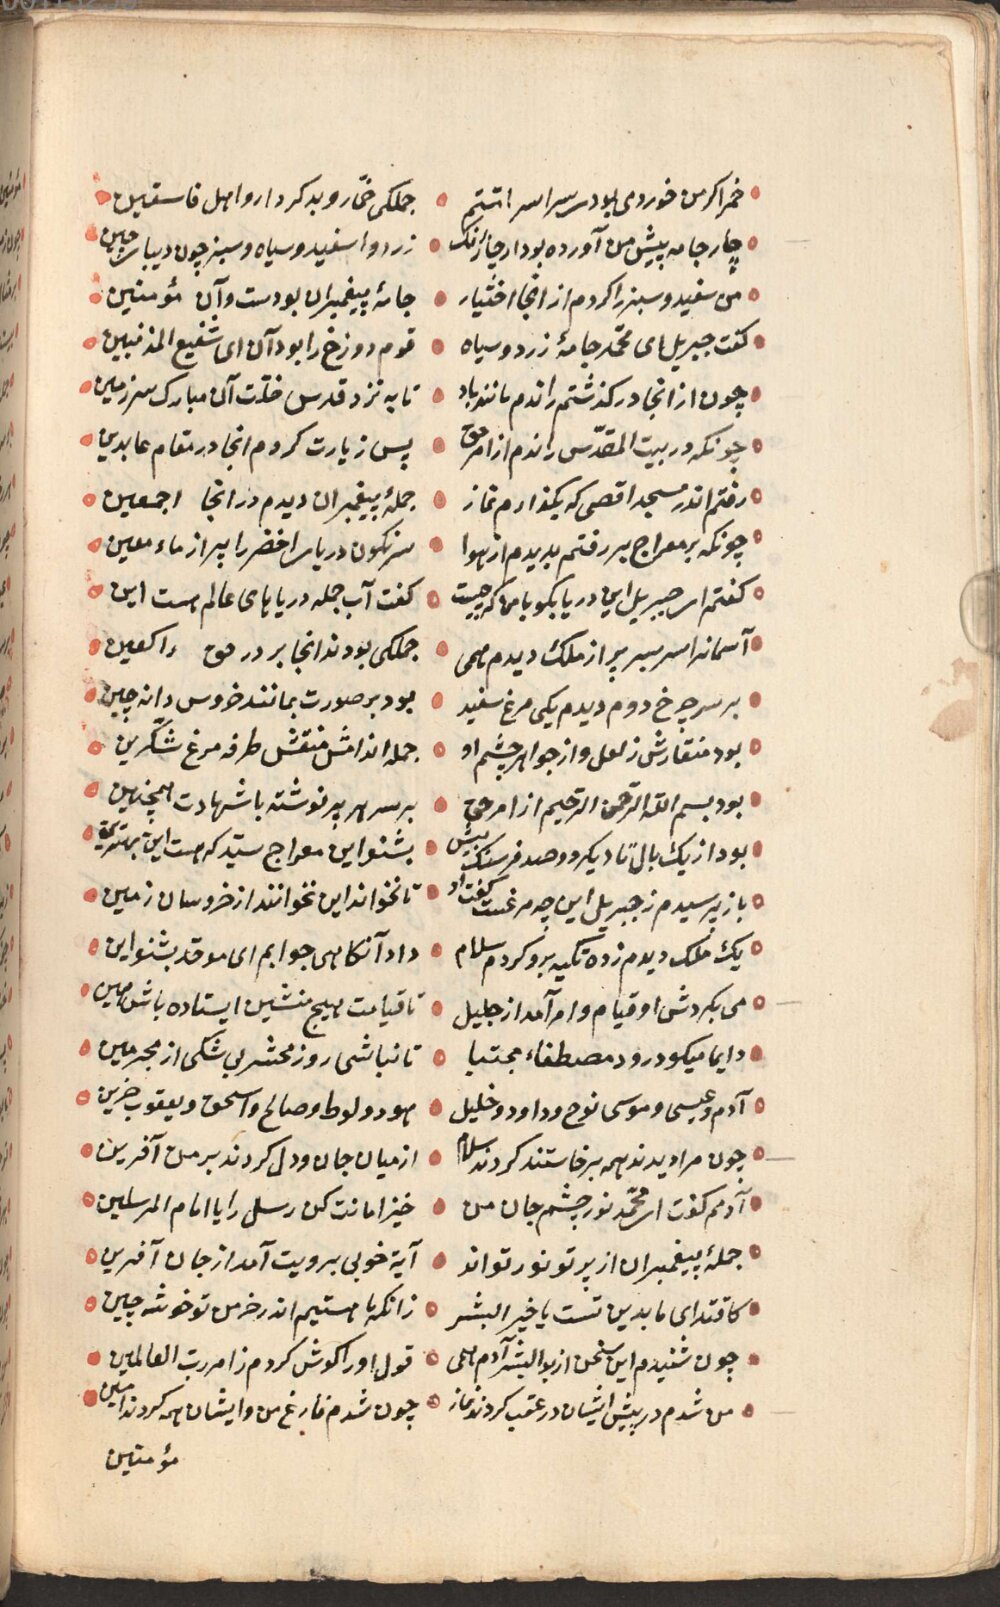 خمر اکر من خوردمی بودی سراسر امتتم جملکی خمّار و بدکردار و اهل فاسقین
چار جامه پیش من آورده بود از چار رنک زرد و اسفید و سیاه و سبز چون دیبای چین
من سفید و سبز را کردم از انجا اختیار جامهٔ پیغمبران بودست و آن مؤمنین
کفت جبریل ای محمّد جامهٔ زرد و سیاه قوم دوزخ را بود آن ای شفیع المذنبین
چون از انجا در کذشتم راندم مانند باد تا به نزد قدس خلّت آن مبارک سرزمین
چونکه در بیت المقدّس راندم از امر حق پس زیارت کردم انجا در مقام عابدین
رفتم اندر مسجد اقصی که بکذارم نماز جملهٔ پیغمبران دیدم در انجا اجمعین
چونکه بر معراج بر رفتم بدیدم از هوا سرنکون دریای اخضر را پر از ماء معین
کفتم ای جبریل این دریا بکو با من که چیست کفت آب جمله دریاهای عالم هست این
آسمانرا سربسر پر از ملک دیدم همی جملکی بودند انجا بر در حق راکعین
بر سر چرخ دوم دیدم یکی مرغ سفید بود بر صورت بمانند خروس دانه چین
بود منقارش ز لعل و از جواهر چشم او جمله اندامش منقش طرفه مرغ شکّرین
بود بسم اللّه الرّحمن الرّحیم از امر حق بر سر هر پر نوشته با شهادت همچنین
بود از یک بال تا دیکر دو صد فرسنک بیش بشنو این معراج سیّد که هست این بهترین
باز پرسیدم ز جبریل این چه مرغست کفت او تا نخواند این نخوانند از خروسان زمین
یک ملک دیدم زده تکیه برو کردم سلام داد آنکاهی جوابم ای موحّد بشنو این
می بکردش او قیام و امر آمد از جلیل تا قیامت هیچ منشین ایستاده باش همین
دایما میکو درود مصطفاء مجتبا تا نباشی روز محشر بی شکی از مجرمین
آدم و عیسی و موسی نوح و داود و خلیل هود و لوط و صالح و اسحق و یعقوب حزین
چون مرا دیدند همه برخاستند کردند سلام از میان جان و دل کردند بر من آفرین
آدمم کفت ای محمّد نور چشم جان من خیز امامت کن رسل را یا امام المرسلین
جملهٔ پیغمبران از پرتو نور تو اند آیة خوبی برویت آمد از جان آفرین
کاقتدای ما بدین تست یا خیر البشر زانکه ما هستیم اندر خرمن تو خوشه چین
چون شنیدم این سخن از بو البشر آدم همی قول او را کوش کردم ز امر ربّ العالمین
من شدم در پیش ایشان در عقب کردند نماز چون شدم فارغ من و ایشان همه کردند امین
مؤمنین